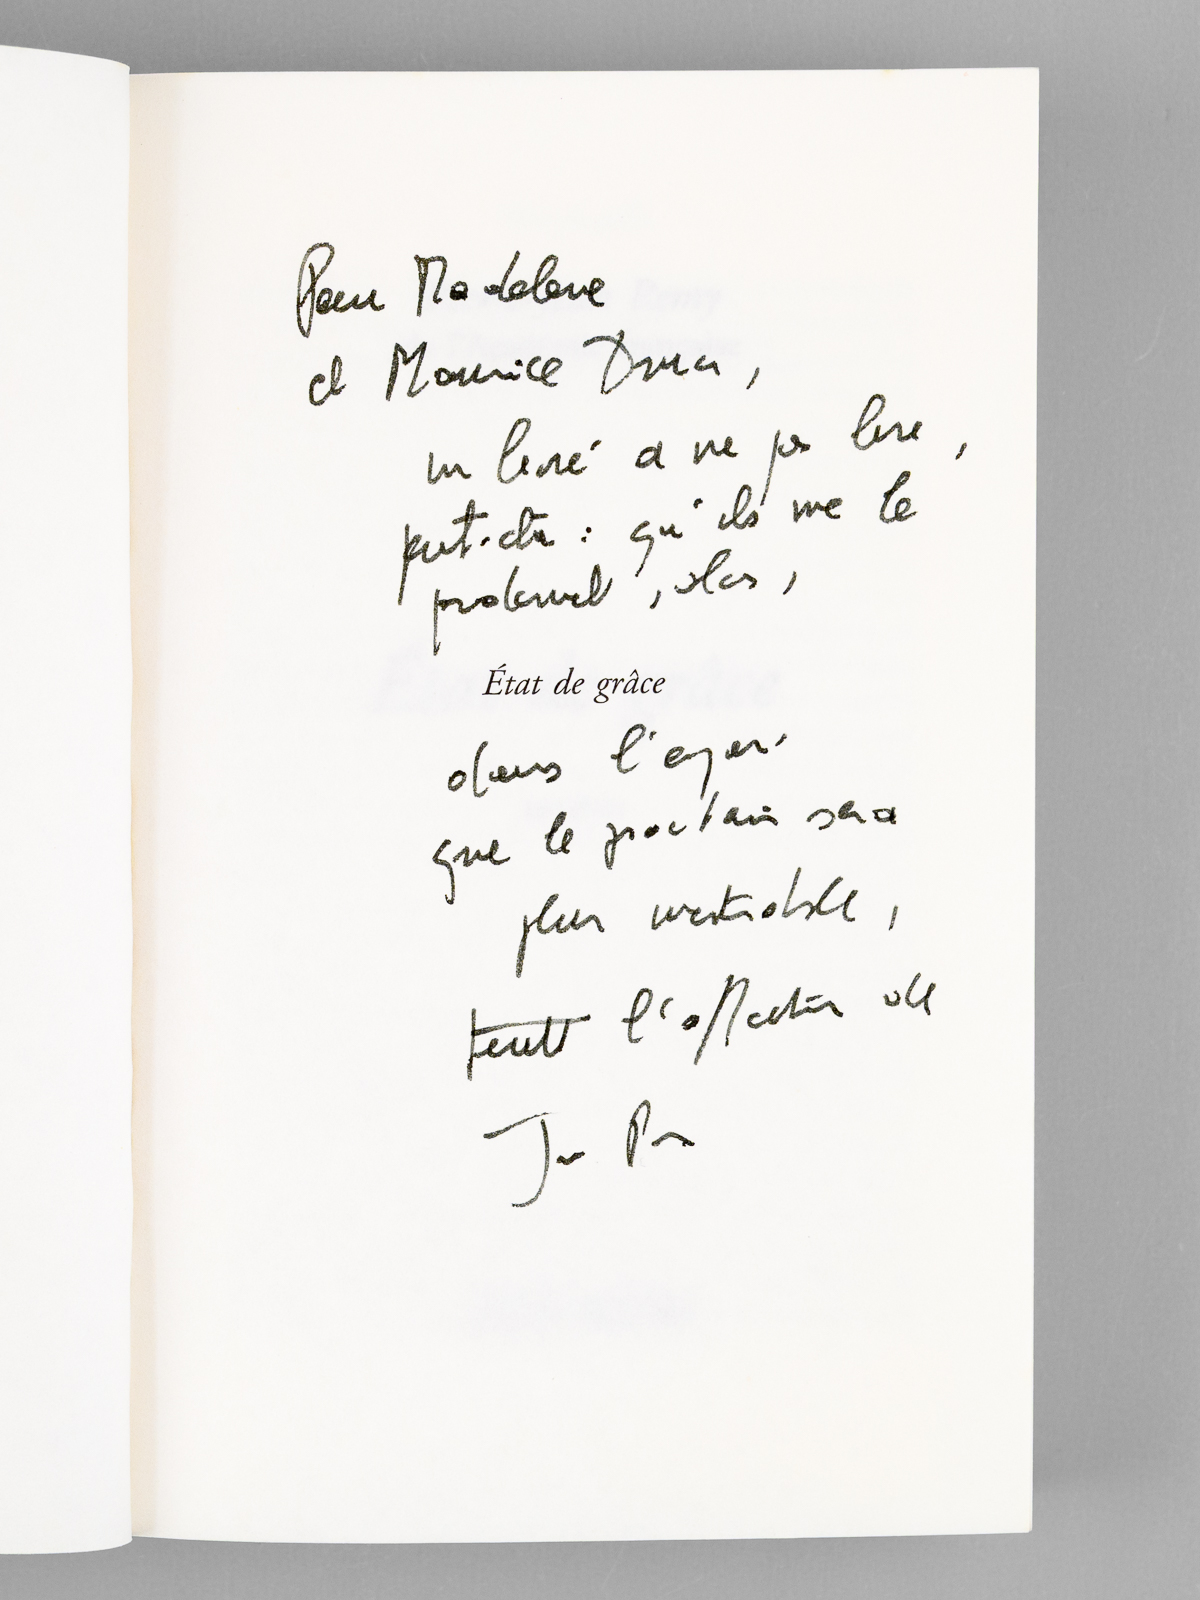 Pour Madeleine
et Maurice Druon,
un livre à ne pas lire,
peut-être : qu'ils me le
pardonnent, hélas,
État de grâce
dans l'espoir
que le prochain sera
plus
toute l'affection de
Jean